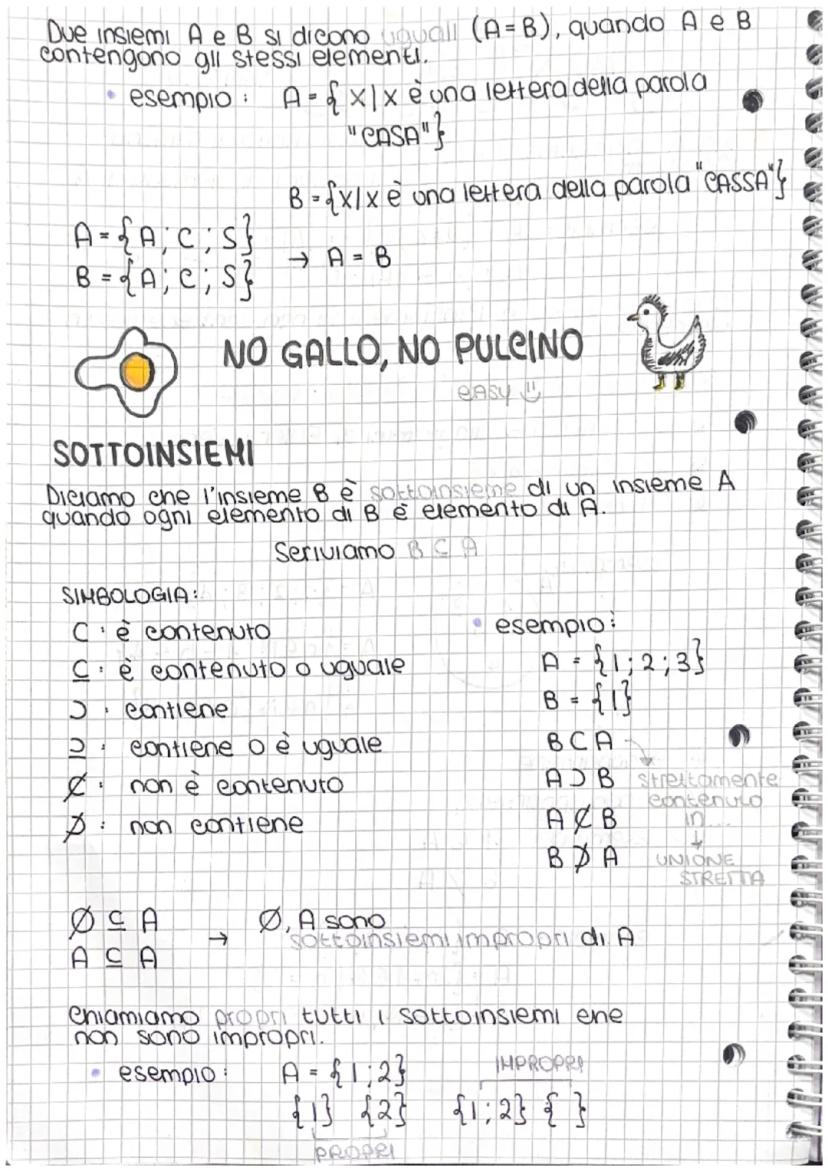 Due insiemi A e B si dicono uguali (A=B), quando A e B
contengono gli stessi elementi.
• esempio: A = { x | x è una lettera della parola
"CASA"}
B = {x | x è una lettera della parola "CASSA"}
A = {A; C; S}
B = {A; C; S}
→ A = B
NO GALLO, NO PULCINO
easy
SOTTOINSIEMI
Diciamo che l'insieme B è sottoinsieme di un insieme A
quando ogni elemento di B è elemento di A.
Scriviamo B ⊆ A
SIMBOLOGIA:
⊂ : è contenuto
⊆ : è contenuto o uguale
⊃ : contiene
⊇ : contiene o è uguale
⊄ : non è contenuto
⊅ : non contiene
• esempio:
A = {1; 2; 3}
B = {1}
B ⊂ A
A ⊃ B
A ⊄ B
B ⊅ A
strettamente
contenuto
in...
↓
UNIONE
STRETTA
∅ ⊆ A
A ⊆ A
→ ∅, A sono
sottoinsiemi impropri di A
Chiamiamo propri tutti i sottoinsiemi che
non sono impropri.
• esempio: A = {1; 2}
IMPROPRI
{1} {2} {1; 2} { }
PROPRI